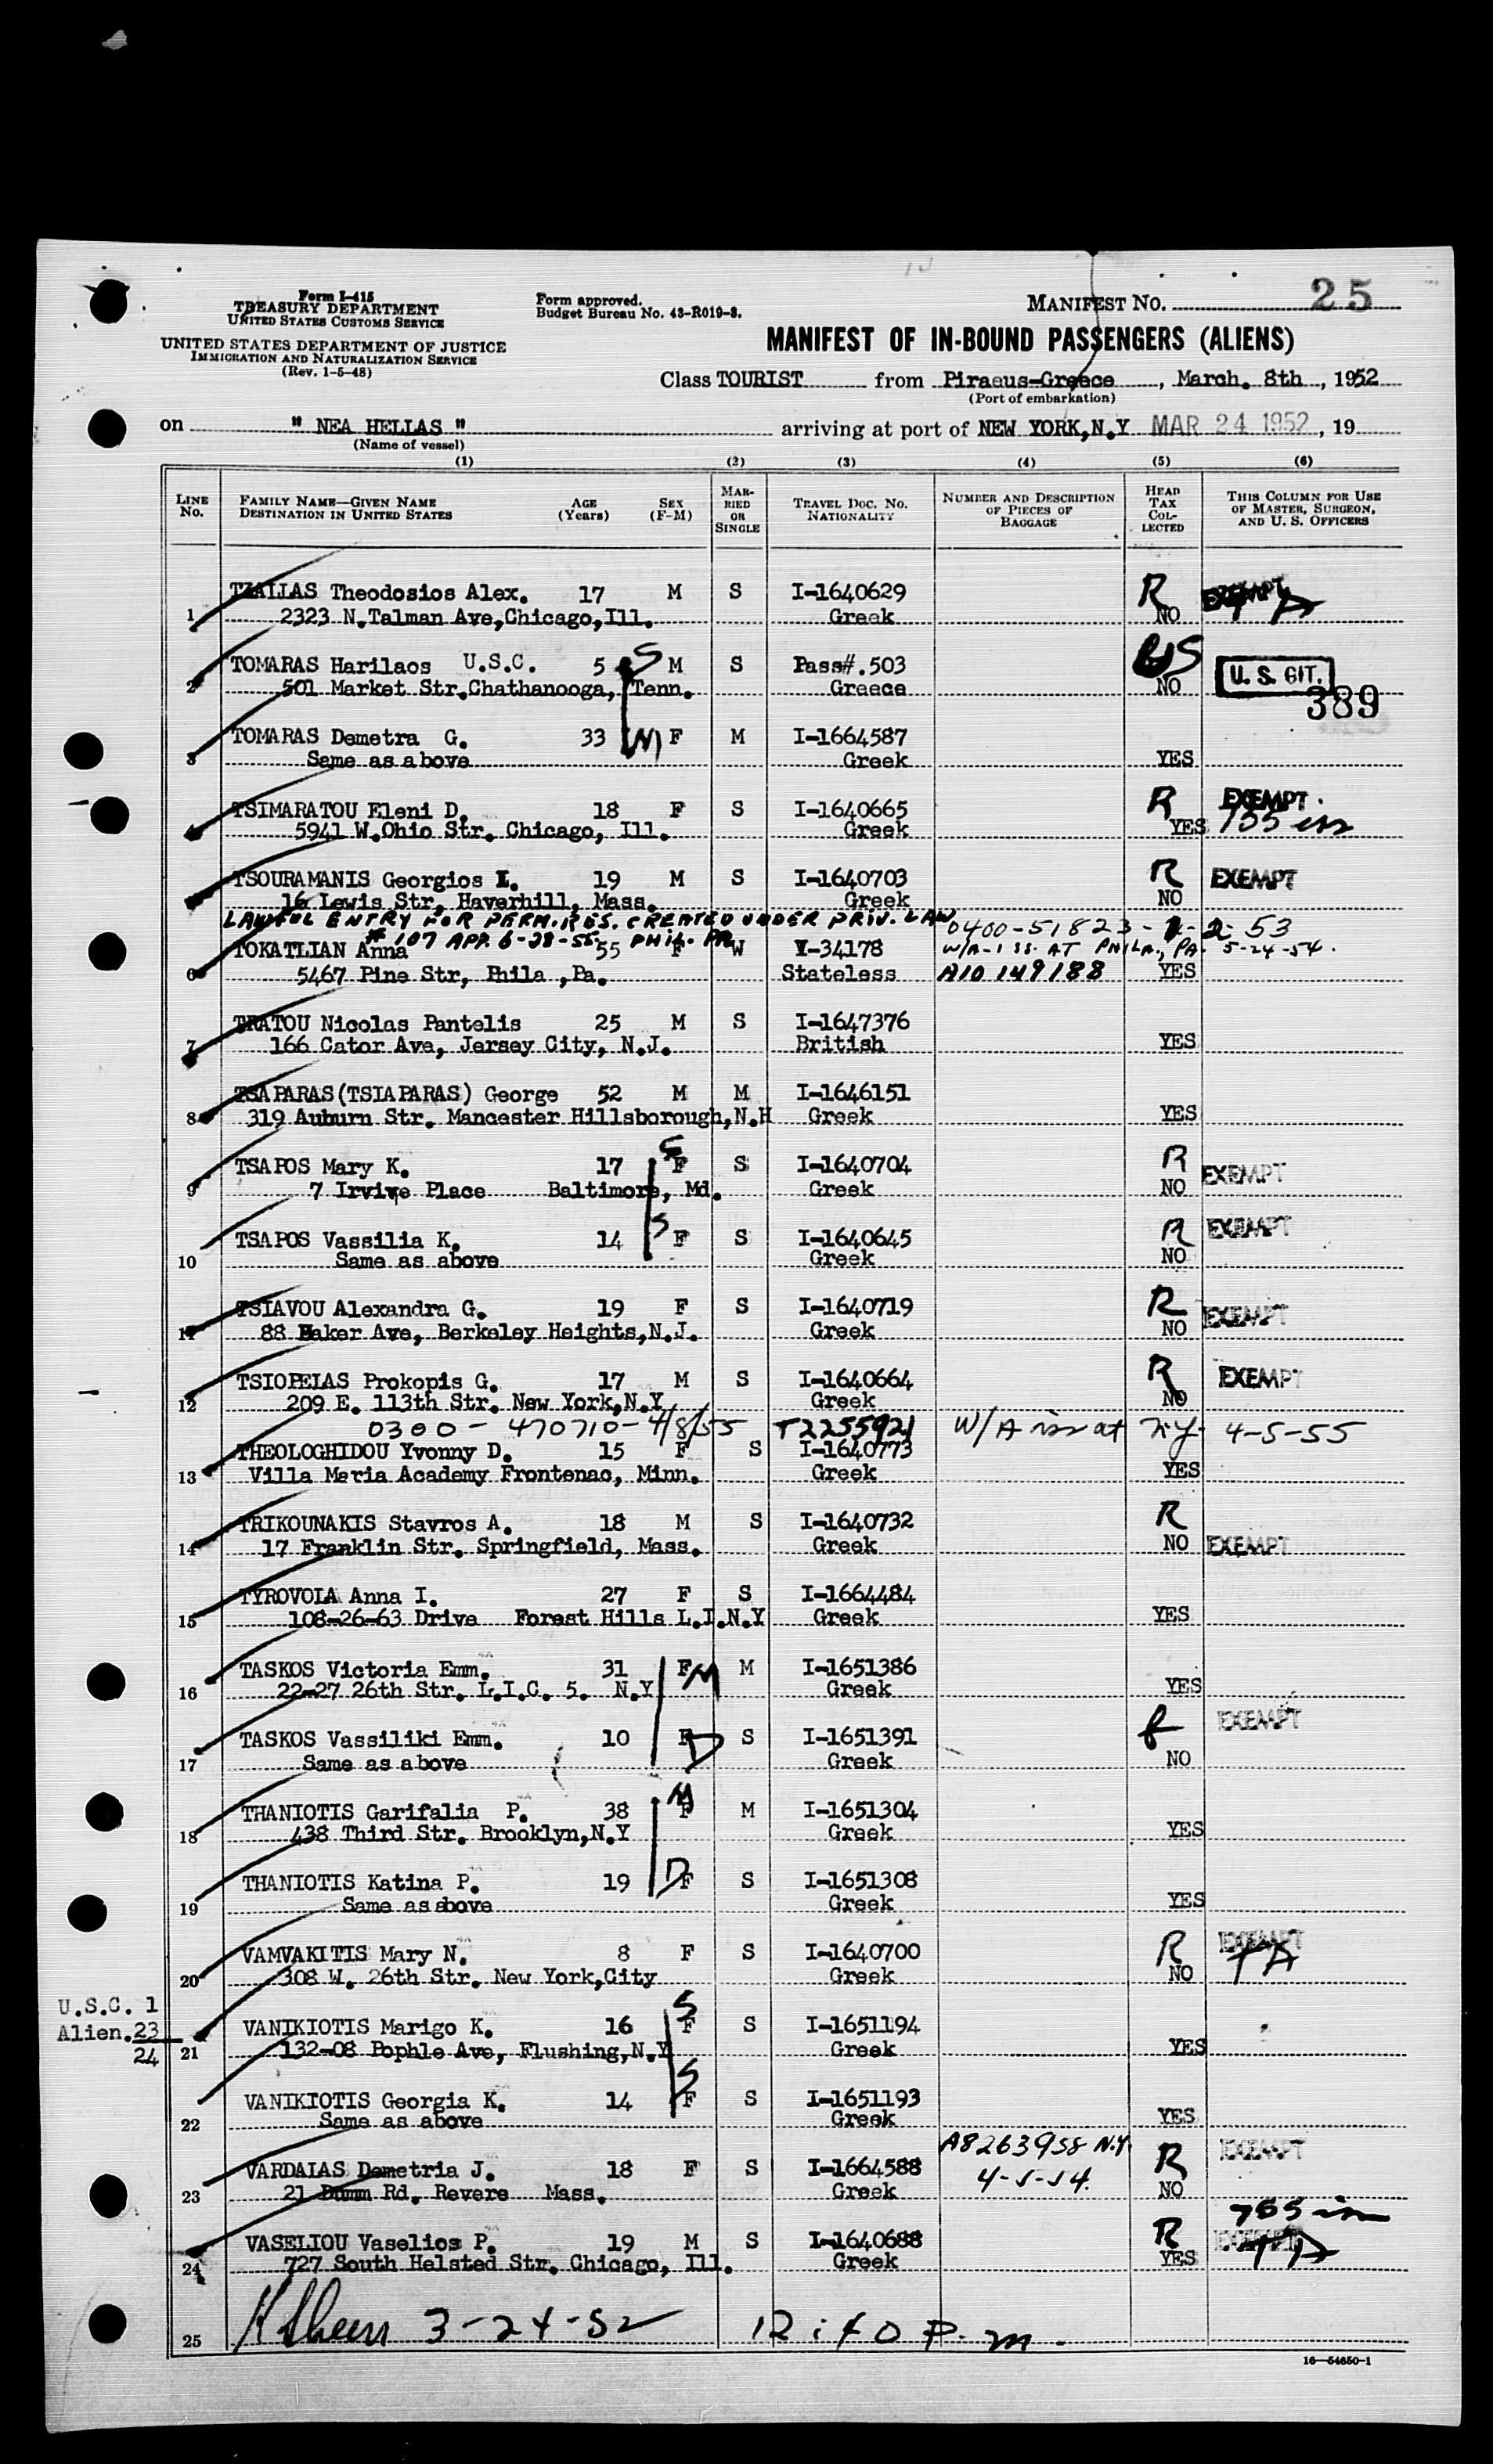 25
Form I-415
TREASURY DEPARTMENT
UNITED STATES CUSTOMS SERVICE
UNITED STATES DEPARTMENT OF JUSTICE
IMMIGRATION AND NATURALIZATION SERVICE
(Rev. 1-5-48)
Form approved.
Budget Bureau No. 43-R019-3.
MANIFEST NO.
MANIFEST OF IN-BOUND PASSENGERS (ALIENS)
Class TOURIST from Piraeus-Greece, March. 8th, 1952
(Port of embarkation)
on " NEA HELLAS " arriving at port of NEW YORK,N.Y MAR 24 1952, 19
(Name of vessel)
(1) (2) (3) (4) (5) (6)
LINE No. FAMILY NAME—GIVEN NAME DESTINATION IN UNITED STATES AGE (Years) SEX (F-M) MARRIED OR SINGLE TRAVEL DOC. NO. NATIONALITY NUMBER AND DESCRIPTION OF PIECES OF BAGGAGE HEAD TAX COLLECTED THIS COLUMN FOR USE OF MASTER, SURGEON, AND U. S. OFFICERS
TZALLAS Theodosios Alex. 17 M S I-1640629 R EXEMPT
1 2323 N.Talman Ave,Chicago,Ill. Greek NO
TOMARAS Harilaos U.S.C. 5 S M S Pass#.503 US U. S. CIT.
2 501 Market Str.Chathanooga, Tenn. Greece NO 389
TOMARAS Demetra G. 33 M F M I-1664587
3 Same as above Greek YES
TSIMARATOU Eleni D. 18 F S I-1640665 R EXEMPT.
4 5941 W.Ohio Str. Chicago, Ill. Greek YES
TSOURAMANIS Georgios I. 19 M S I-1640703 R EXEMPT
5 16 Lewis Str, Haverhill, Mass. Greek NO
LAWFUL ENTRY FOR PERM. RES. CREATED UNDER PRIV. LAW 0400-51823- 2-53
# 107 APP. 6-28-55 PHIL. PA W/A-ISS. AT PHILA., PA. 5-24-54.
TOKATLIAN Anna 55 F W V-34178
6 5467 Pine Str, Phila ,Pa. Stateless A10 149188 YES
TRATOU Nicolas Pantelis 25 M S I-1647376
7 166 Cator Ave, Jersey City, N.J. British YES
TSAPARAS(TSIAPARAS) George 52 M M I-1646151
8 319 Auburn Str. Mancester Hillsborough,N.H Greek YES
TSAPOS Mary K. 17 S F S I-1640704 R EXEMPT
9 7 Irvive Place Baltimore, Md. Greek NO
TSAPOS Vassilia K. 14 S F S I-1640645 R EXEMPT
10 Same as above Greek NO
TSIAVOU Alexandra G. 19 F S I-1640719 R EXEMPT
11 88 Baker Ave, Berkeley Heights,N.J. Greek NO
TSIOPELAS Prokopis G. 17 M S I-1640664 R EXEMPT
12 209 E. 113th Str. New York,N.Y Greek NO
0300- 470710-4/8/55 T2255921 W/A iss at N.Y. 4-5-55
THEOLOGHIDOU Yvonny D. 15 F S I-1640773
13 Villa Maria Academy Frontenac, Minn. Greek YES
TRIKOUNAKIS Stavros A. 18 M S I-1640732 R
14 17 Franklin Str. Springfield, Mass. Greek NO EXEMPT
TYROVOLA Anna I. 27 F S I-1664484
15 108-26-63 Drive Forest Hills L.I.N.Y Greek YES
TASKOS Victoria Emm. 31 F M M I-1651386
16 22-27 26th Str. L.I.C. 5. N.Y Greek YES
TASKOS Vassiliki Emm. 10 F D S I-1651391 EXEMPT
17 Same as above Greek NO
THANIOTIS Garifalia P. 38 M F M I-1651304
18 438 Third Str. Brooklyn,N.Y Greek YES
THANIOTIS Katina P. 19 D F S I-1651308
19 Same as above Greek YES
VAMVAKITIS Mary N. 8 F S I-1640700 R EXEMPT
20 308 W. 26th Str. New York,City Greek NO
U.S.C. 1
Alien.23
24
VANIKIOTIS Marigo K. 16 S F S I-1651194
21 132-08 Pophle Ave, Flushing,N.Y Greek YES
VANIKIOTIS Georgia K. 14 S F S I-1651193
22 Same as above Greek YES
A8263958 N.Y.
VARDALAS Demetria J. 18 F S I-1664588 R EXEMPT
23 21 Dumm Rd. Revere Mass. Greek NO
VASELIOU Vaselios P. 19 M S I-1640688 R EXEMPT
24 727 South Helsted Str. Chicago, Ill. Greek YES
25 3-24-52 12:40 P.m.
16—54650-1